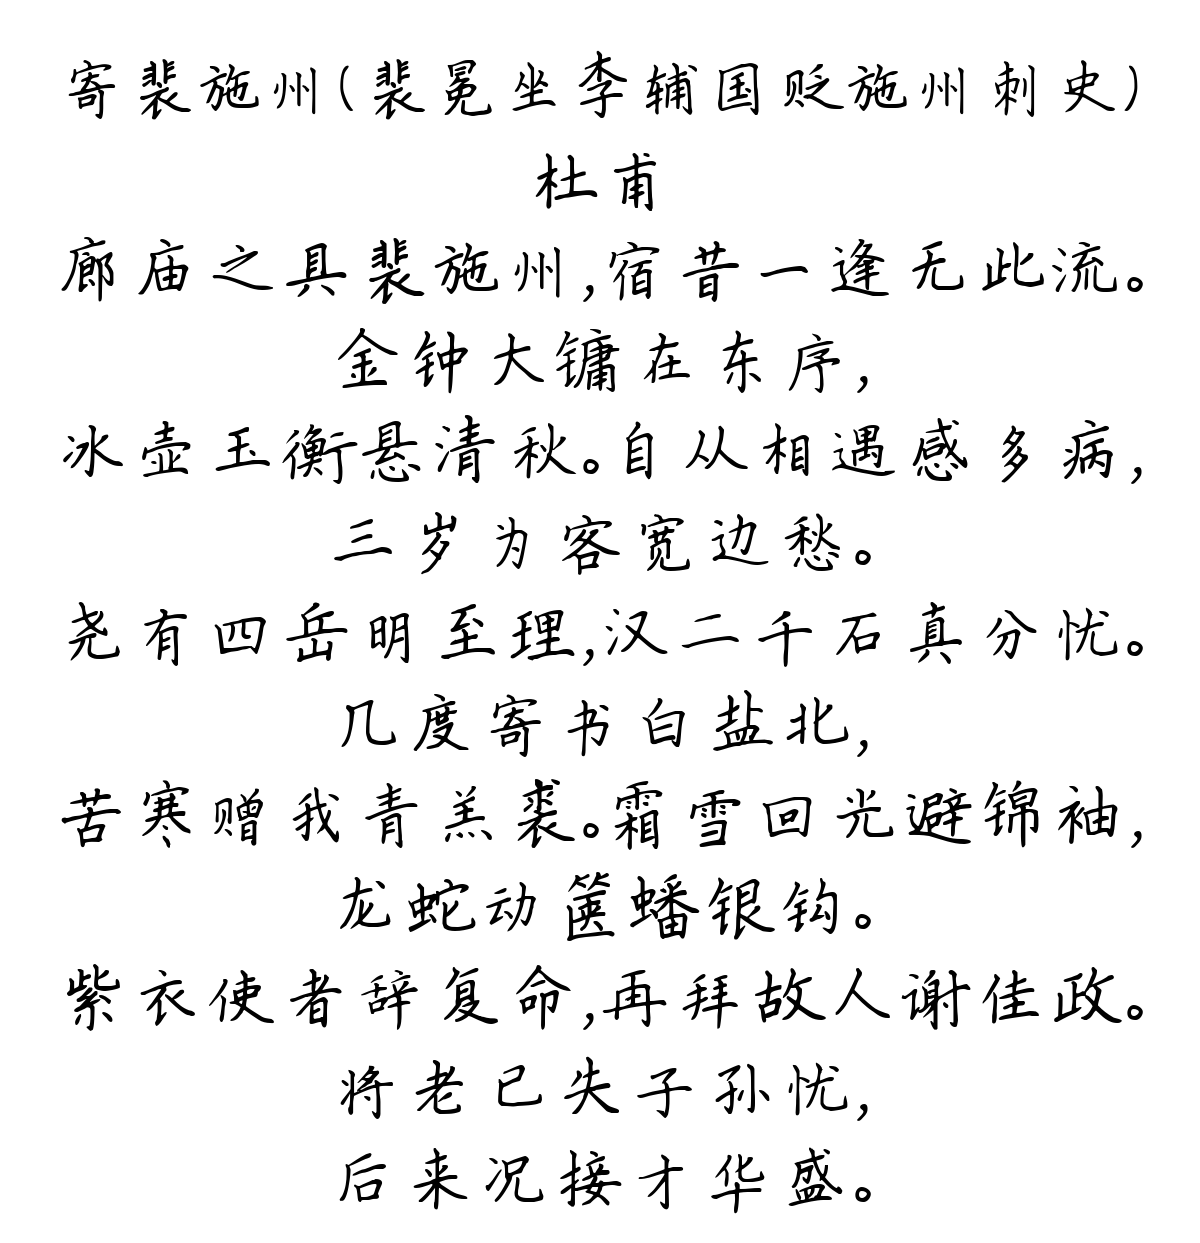 寄裴施州(裴冕坐李辅国贬施州刺史)
杜甫
廊庙之具裴施州,宿昔一逢无此流。
金钟大镛在东序,
冰壶玉衡悬清秋。自从相遇感多病,
三岁为客宽边愁。
尧有四岳明至理,汉二千石真分忧。
几度寄书白盐北,
苦寒赠我青羔裘。霜雪回光避锦袖,
龙蛇动箧蟠银钩。
紫衣使者辞复命,再拜故人谢佳政。
将老已失子孙忧,
后来况接才华盛。